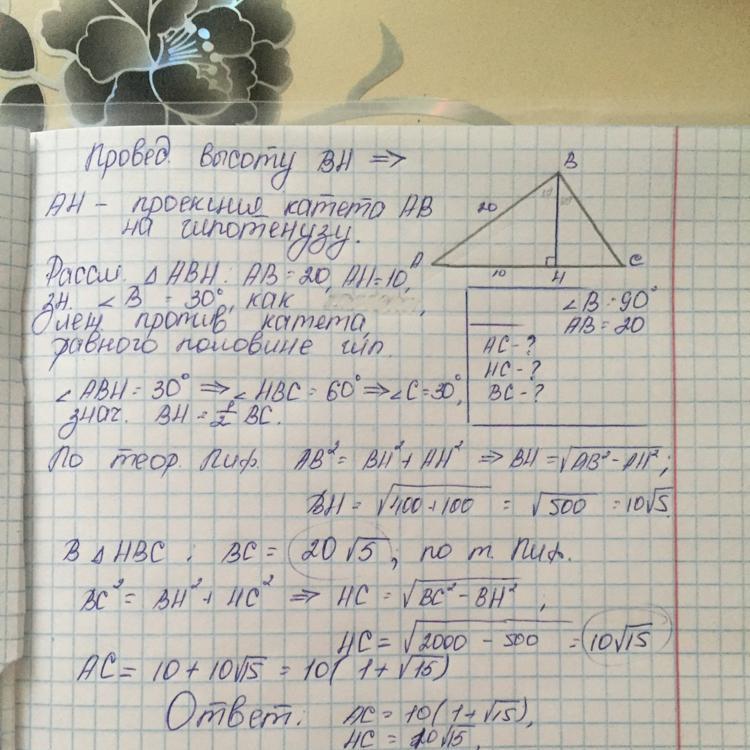 Провед. высоту BH ⇒
AH – проекция катета AB
на гипотенузу.
Рассм. △ ABH: AB=20, AH=10,
зн. ∠B = 30°, как
леж против катета,
равного половине гип.
∠ABH = 30° ⇒ ∠HBC = 60° ⇒ ∠C=30°,
знач. BH = 1/2 BC.
B
20
A
10
H
C
∠B = 90°
AB = 20
AC - ?
HC - ?
BC - ?
По теор. Пиф. AB² = BH² + AH² ⇒ BH = √AB² – AH² ;
BH = √400 + 100 = √500 = 10√5.
В △ HBC : BC = 20√5 ; по т. Пиф.
BC² = BH² + HC² ⇒ HC = √BC² – BH² ;
HC = √2000 – 500 = 10√15
AC = 10 + 10√15 = 10(1+√15)
Ответ: AC = 10(1+√15),
HC = 10√15,